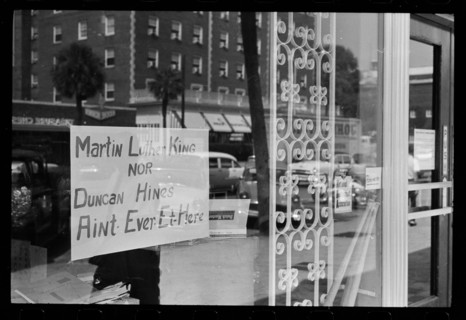 Martin Luther King
NOR
Duncan Hines
Aint Ever Et Here